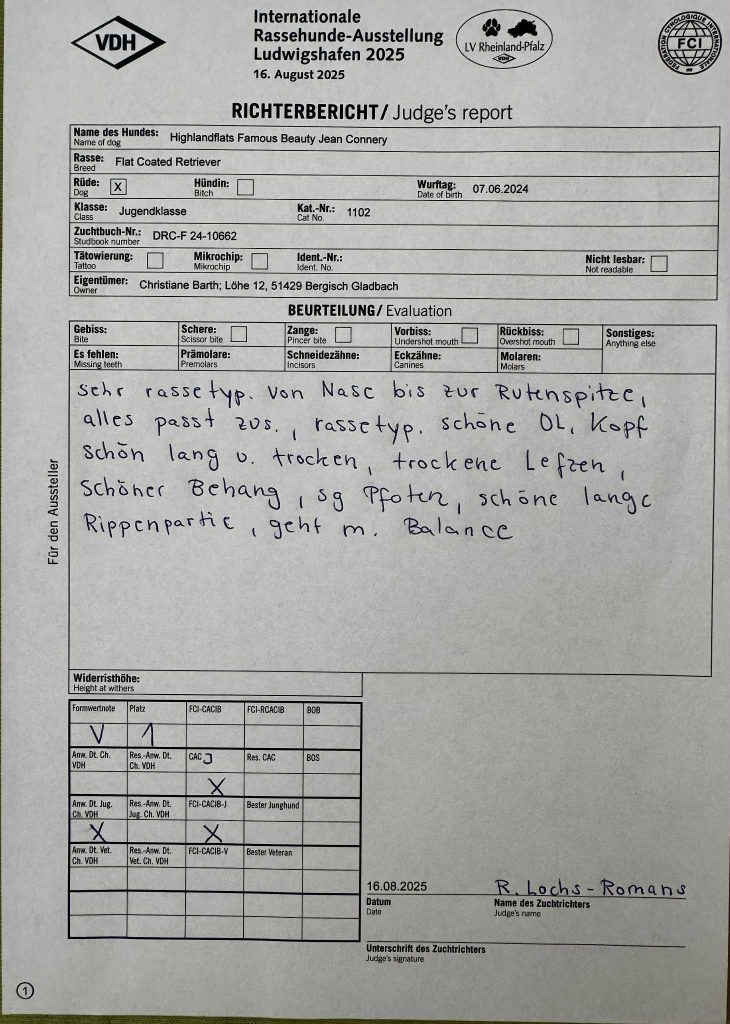 VDH
Internationale
Rassehunde-Ausstellung
Ludwigshafen 2025
16. August 2025
LV Rheinland-Pfalz
VDH
FEDERATION CYNOLOGIQUE INTERNATIONALE
FCI
RICHTERBERICHT/ Judge's report
Name des Hundes: Highlandflats Famous Beauty Jean Connery
Name of dog
Rasse: Flat Coated Retriever
Breed
Rüde: X Hündin: Wurftag: 07.06.2024
Dog Bitch Date of birth
Klasse: Jugendklasse Kat.-Nr.: 1102
Class Cat No.
Zuchtbuch-Nr.: DRC-F 24-10662
Studbook number
Tätowierung: Mikrochip: Ident.-Nr.: Nicht lesbar:
Tattoo Mikrochip Ident. No. Not readable
Eigentümer: Christiane Barth; Löhe 12, 51429 Bergisch Gladbach
Owner
BEURTEILUNG/ Evaluation
Gebiss: Schere: Zange: Vorbiss: Rückbiss: Sonstiges:
Bite Scissor bite Pincer bite Undershot mouth Overshot mouth Anything else
Es fehlen: Prämolare: Schneidezähne: Eckzähne: Molaren:
Missing teeth Premolars Incisors Canines Molars
Für den Aussteller
sehr rassetyp. von Nase bis zur Rutenspitze,
alles passt zus., rassetyp. schöne OL, Kopf
schön lang u. trocken, trockene Lefzen,
schöner Behang, sg Pfoten, schöne lange
Rippenpartie, geht m. Balance
Widerristhöhe:
Height at withers
Formwertnote Platz FCI-CACIB FCI-RCACIB BOB
V 1
Anw. Dt. Ch. VDH Res.-Anw. Dt. Ch. VDH CAC J Res. CAC BOS
X
Anw. Dt. Jug. Ch. VDH Res.-Anw. Dt. Jug. Ch. VDH FCI-CACIB-J Bester Junghund
X X
Anw. Dt. Vet. Ch. VDH Res.-Anw. Dt. Vet. Ch. VDH FCI-CACIB-V Bester Veteran
16.08.2025 R. Lochs-Romans
Datum Name des Zuchtrichters
Date Judge's name
Unterschrift des Zuchtrichters
Judge's signature
1